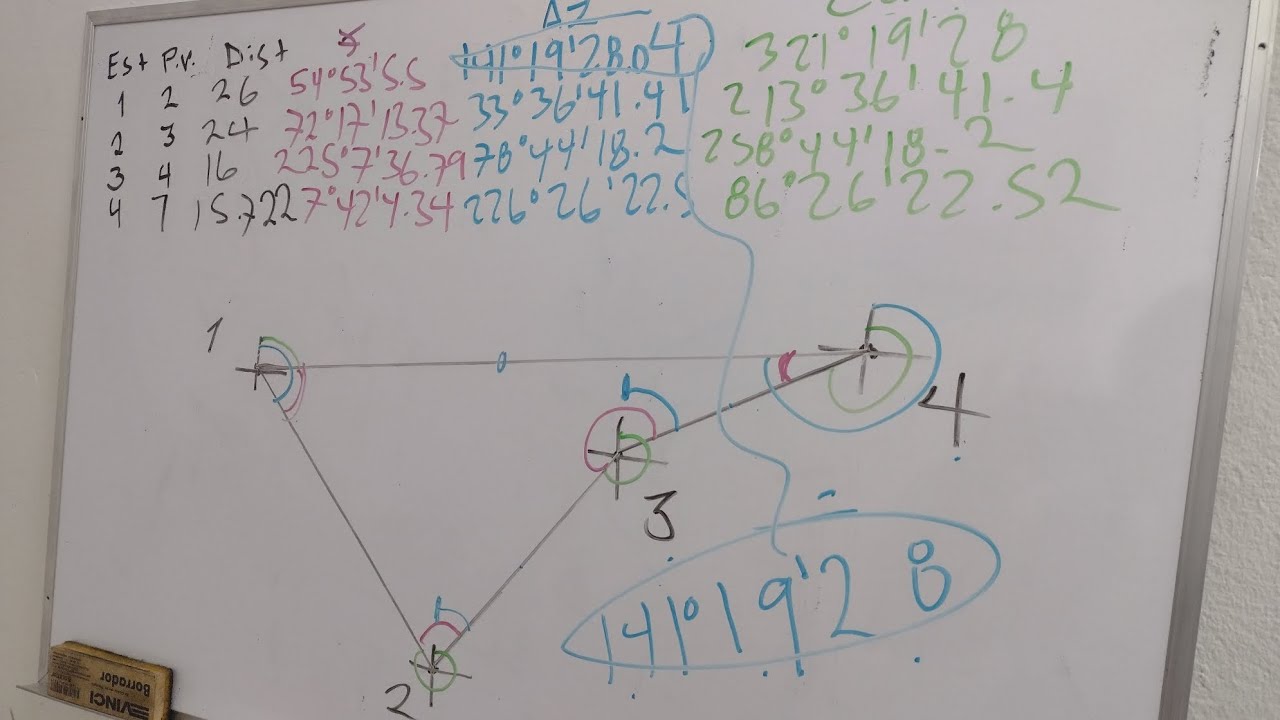 Az
Est P.V. Dist ∡ 141°19'28.04 321°19'28
1 2 26 54°53'5.5 33°36'41.41 213°36'41.4
2 3 24 72°17'13.37 78°44'18.2 258°44'18.2
3 4 16 225°7'36.79 226°26'22.5 86°26'22.52
4 1 15.722 7°42'4.34
1
4
3
141°19'28
2
VINCI
Borrador